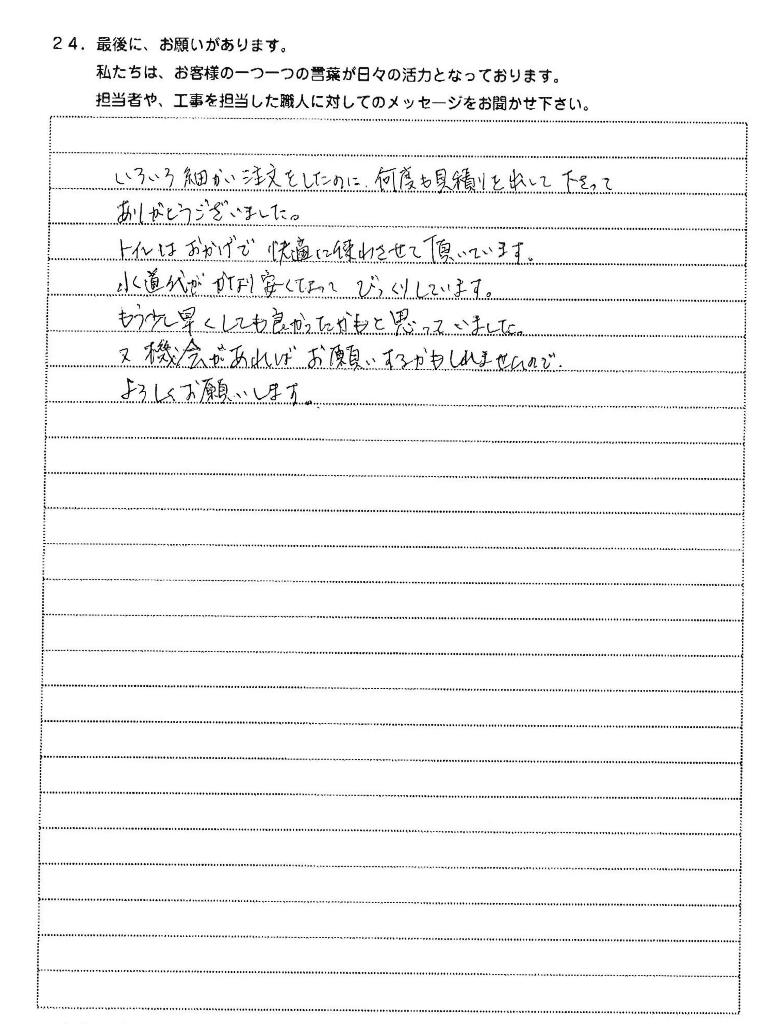 24. 最後に、お願いがあります。
私たちは、お客様の一つ一つの言葉が日々の活力となっております。
担当者や、工事を担当した職人に対してのメッセージをお聞かせ下さい。
いろいろ細かい注文をしたのに、何度も見積りを出して下さって
ありがとうございました。
トイレはおかげで快適に使わさせて頂いています。
水道代がかなり安くなって びっくりしています。
もう少し早くしても良かったかもと思っていました。
又機会があれば お願いするかもしれませんので、
よろしくお願いします。